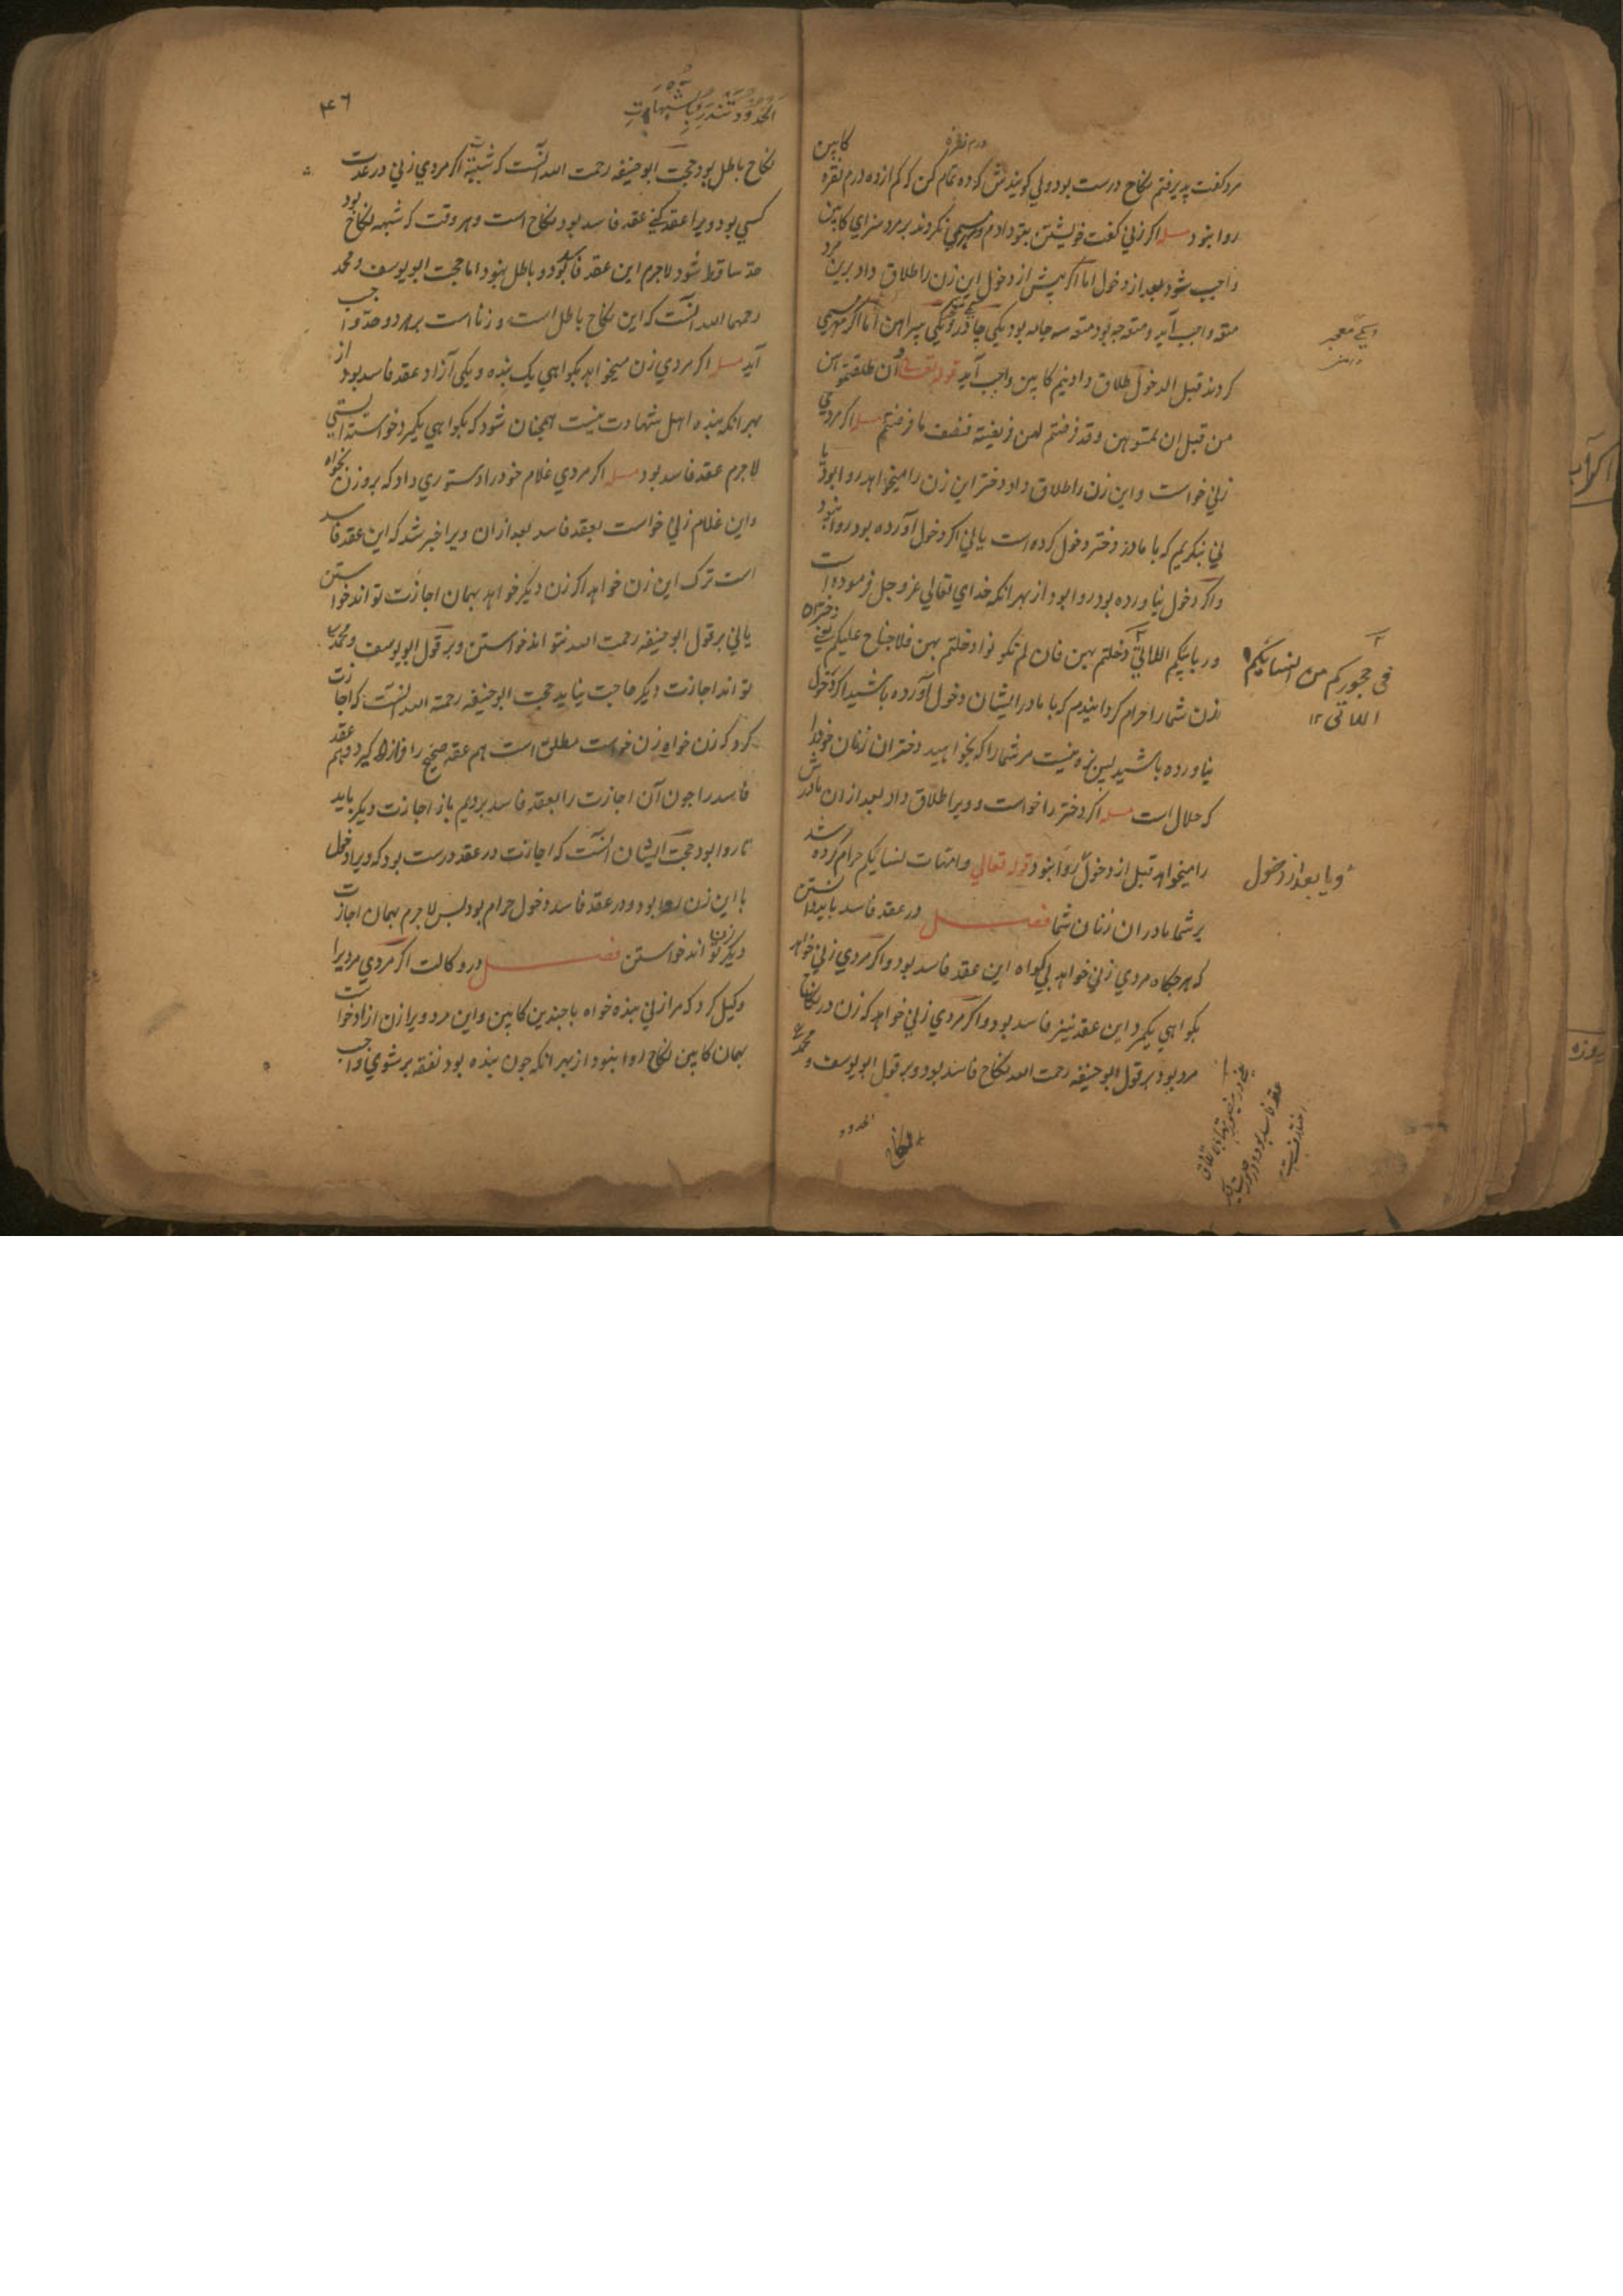 درم نقره
مرد گفت پذیرفتم نکاح درست بود ولی گویندش که ده تمام کن که کم از ده درم نقره کابین
روا نبود مسله اگر زنی گفت خویشتن بتو دادم و مهر مسمی نکردند بر مرد سزای کابین
واجب شود بعد از دخول اما اگر پیش از دخول این زن را طلاق داد برین مرد
متعه واجب آید و متعه چه بود متعه سه جامه بود یکی چادر و یکی پیراهن اما اگر مهر مسمی
کردند قبل الدخول طلاق داد نیم کابین واجب آید قوله تعالی و ان طلقتموهن
من قبل ان تمسوهن و قد فرضتم لهن فریضة فنصف ما فرضتم مسله اگر مردی
زنی خواست و این زن را طلاق داد دختر این زن را میخواهد روا بود یا
نی بنگریم که با مادر دختر دخول کرده است یا نی اگر دخول آورده بود روا نبود
و اگر دخول نیاورده بود روا بود از بهر آنکه خدای تعالی عز و جل فرموده است
و ربائبکم اللاتی دخلتم بهن فان لم تکونوا دخلتم بهن فلا جناح علیکم یعنی دختران
زن شما را حرام گردانیدم که با مادر ایشان دخول آورده باشید اگر دخول
نیاورده باشید پس بزه نیست مر شما را که بخواهید دختران زنان خود را
که حلال است مسله اگر دختر را خواست و ویرا طلاق داد بعد از ان مادرش
را میخواهد قبل از دخول روا نبود قوله تعالی و امهات نسایکم حرام کرده شد
بر شما مادران زنان شما فصل در عقد فاسد باید دانستن
که هرگاه مردی زنی خواهد بی گواه این عقد فاسد بود و اگر مردی زنی خواهد
بگواهی یکمرد این عقد نیز فاسد بود و اگر مردی زنی خواهد که زن در نکاح
مرد بود بر قول ابو حنیفه رحمت الله نکاح فاسد بود و بر قول ابو یوسف و محمد
فی حجورکم من نسائکم
اللاتی ۱۲
و یا بعد از دخول
نکاح
الحدود تندرئ بالشبهات
۴۶
نکاح باطل بود حجت ابو حنیفه رحمت الله آنست که شبهة اگر مردی زنی در عدت
کسی بود ویرا عقد کنی عقد فاسد بود نکاح است و هر وقت که شبهه نکاح بود
حد ساقط شود لاجرم این عقد فاسد بود و باطل نبود اما حجت ابو یوسف و محمد
رحمهما الله آنست که این نکاح باطل است و زنا است بر هر دو حد واجب
آید مسله اگر مردی زن میخواهد بگواهی یک بنده و یکی آزاد عقد فاسد بود از
بهر آنکه بنده اهل شهادت نیست همچنان شود که بگواهی یکمرد خواستستی
لاجرم عقد فاسد بود مسله اگر مردی غلام خود را دستوری داد که برو زن بخواه
و این غلام زنی خواست بعقد فاسد بعد از ان ویرا خبر شد که این عقد فاسد
است ترک این زن خواهد اگر زن دیگر خواهد بهمان اجازت تواند خواستن
یا نی بر قول ابو حنیفه رحمت الله نتواند خواستن و بر قول ابو یوسف و محمد
تواند اجازت دیگر حاجت نیاید حجت ابو حنیفه رحمته الله آنست که اجازت
کرد که زن خواه زن خواست مطلق است هم عقد صحیح را فراز گیرد و هم عقد
فاسد را چون آن اجازت را بعقد فاسد بردیم باز اجازت دیگر باید
تا روا بود حجت ایشان آنست که اجازت در عقد درست بود که ویرا دخول
با این زن روا بود و در عقد فاسد دخول حرام بود پس لاجرم بهمان اجازت
زن دیگر تواند خواستن فصل در وکالت اگر مردی مردیرا
وکیل کرد که مرا زنی بنده خواه با چندین کابین و این مرد ویرا زن ازاد خواست
بهمان کابین نکاح روا نبود از بهر آنکه چون بنده بود نفقه بر شوی واجب